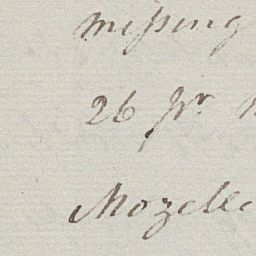 missing
26 fr.
Mozelle